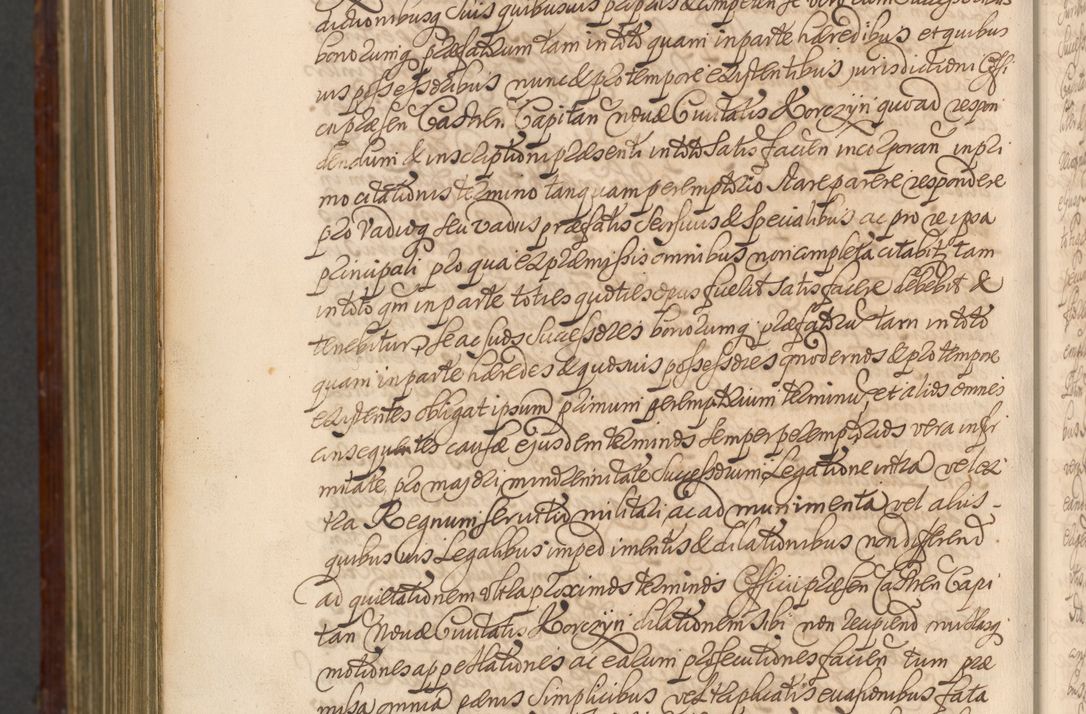 dictionibusq suis quibusuis propriis & competen se vero eum successores
bonorumq præfatorum tam in toto quam in parte hæredibus et quibus
uis possessoribus nunc & pro tempore existentibus jurisdictioni Offi
cii præsen Castren Capitan Novæ Civitatis Korczyn quoad respon
dendum & inscriptioni præsenti in toto satisfacien incorporan in pri
mo citationis termino tanquam peremptorio stare parere respondere
pro vadiog seu vadiis præfatis sursivis & specialibus ac pro re ipsa
principali pro qua ex præmissis omnibus non completa citabit tam
in toto qm in parte toties quoties opus fuerit satisfacere debebit &
tenebitur, se ac suos successores bonorumq præfatoru tam in toto
quam in parte hæredes & quosuis possessores modernos & pro tempore
existentes obligat ipsum primum peremptorium terminu et alios omnes
consequentes causæ ejusdem terminos semper peremptorios vera infir
mitate pro majori minorennitate successorum Legatione intra vel ex
tra Regnum servitio militari ac ad munimenta vel aliis
quibusuis Legalibus impedimentis & dilationibus non differend
ad quietationem ultra proximos terminos Officii præsen Castren Capi
tan Novæ Civitatis Korczyn dilationem sibi non recipiend nullasq
motiones appellationes ac earum prosecutiones facien tum præ
missa omnia pænis simplicibus vel triplicatis evasionibus lata